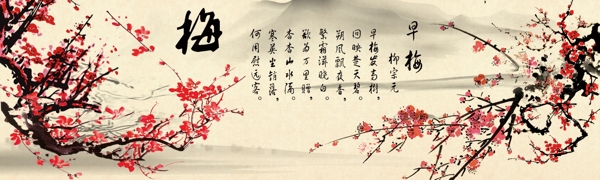 早梅
柳宗元
早梅發高樹，
回映楚天碧。
朔風飄夜香，
繁霜滓曉白。
欲為万里贈，
杳杳山水隔。
寒英坐銷落，
何用慰远客。
梅